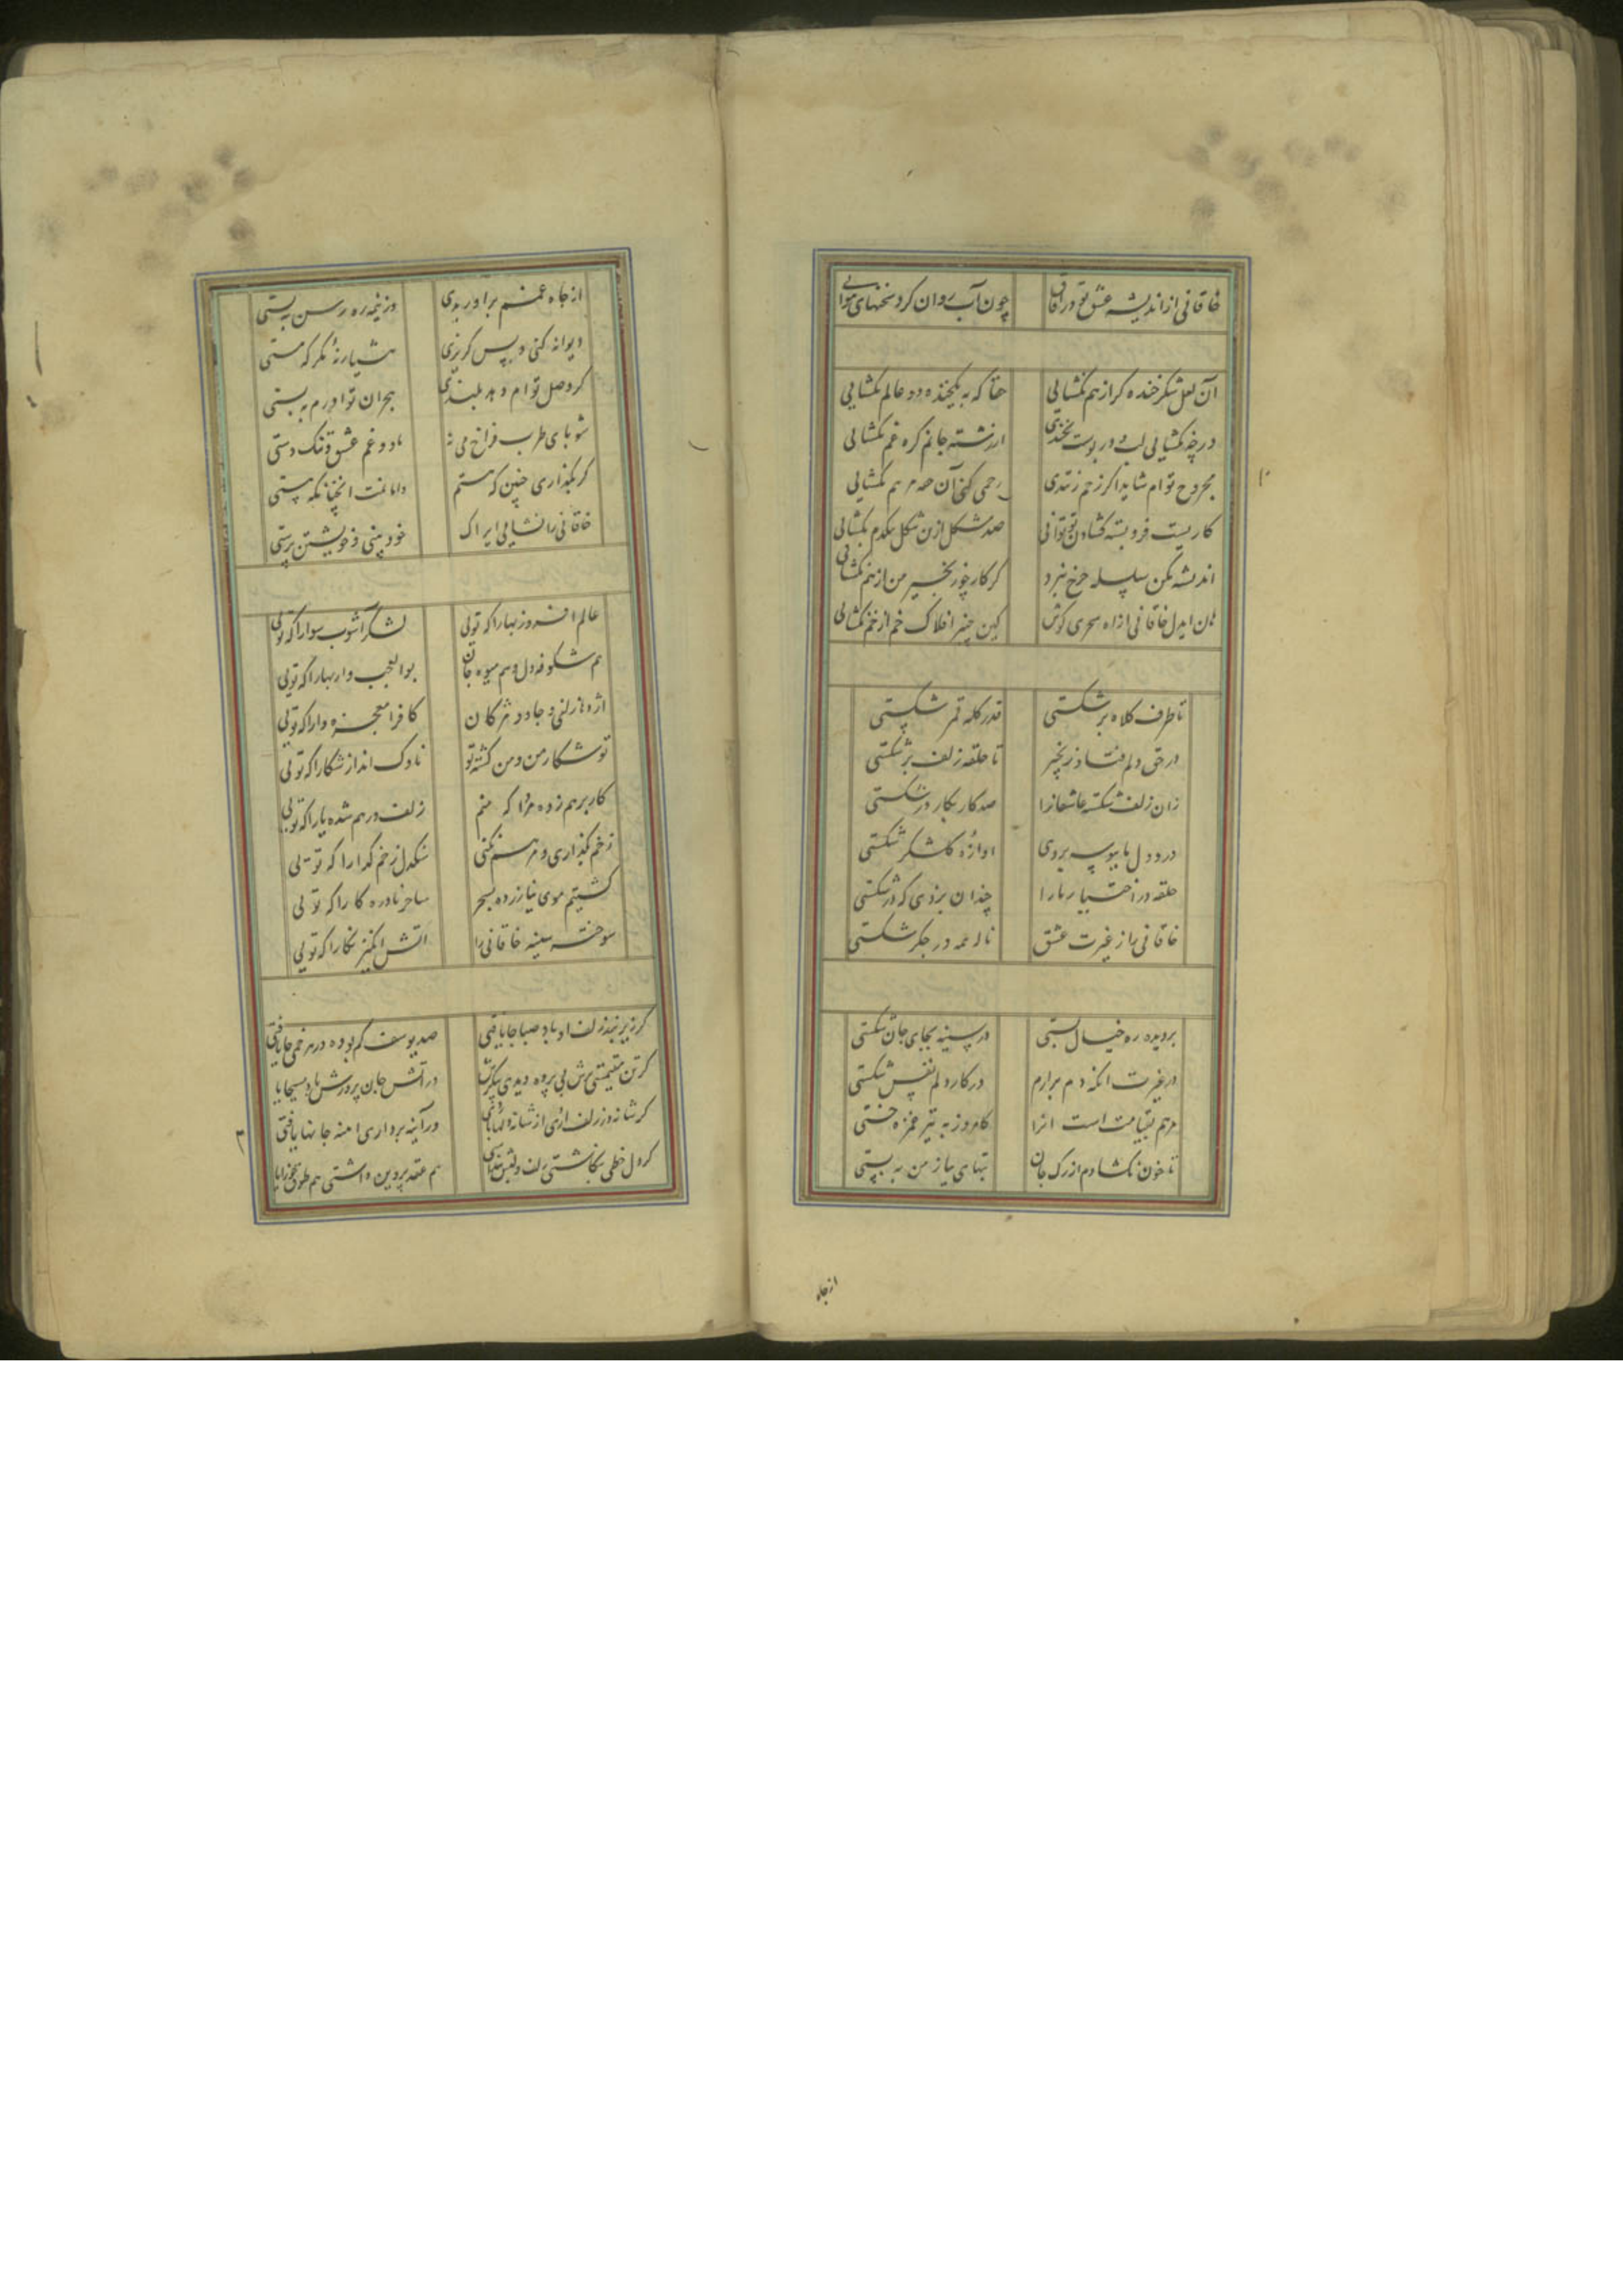 خاقانی از اندیشه عشق تو در آفاق چون آب روان کرد سخنهای هوایی
آن لعل شکر خنده گر از هم بگشایی حقا که به یکخنده دو عالم بگشایی
ورچه نگشایی لب و در پوست بخندی از رشته جانم گره غم بگشایی
مجروح توام شاید اگر زخم نبندی رحمی کن آن حقه مرهم بگشایی
کاریست فرو بسته گشادن تو توانی صد مشکل ازین شکل بیکدم بگشایی
اندیشه مکن سلسله چرخ نبرد گر کار چو زنجیر من از هم بگشایی
هان ایدل خاقانی از آه سحری کوش کین چنبر افلاک خم از خم بگشایی
تا طرف کلاه بر شکستی قدر کله قمر شکستی
در حق دلم فتاد زنجیر تا حلقه زلف بر شکستی
زان زلف شکسته عاشقانرا صد کار بکار در شکستی
درد دل ما ببوسه بردی آوازه گلشکر شکستی
حلقه در اختیار ما را چندان بزدی که در شکستی
خاقانی را ز غیرت عشق ناله همه در جگر شکستی
بر دیده ره خیال بستی در سینه بجای جان نشستی
در غیرت آنکه دم برآرم در کار دلم نفس شکستی
مرهم بقیامت است آنرا کامروز به تیر غمزه خستی
تا خون نگشادم از رگ جان تبهای نیاز من نه بستی
از جاه
از چاه غمم برآوریدی در نیمه ره رسن گسستی
دیوانه کنی و پس گریزی هشیار نهٔ مگر که مستی
گر وصل توام دهد بلندی هجران تو آورم به پستی
شو پای طرب فراخ می نه ما و غم عشق و تنگ دستی
گر بگذاری چنین که هستم دامنت آنچنانکه هستی
خاقانی را نشایی ایراک خود بینی و خویشتن پرستی
عالم افروز بهارا که تویی لشکر آشوب سوارا که تویی
هم شکوفه دل و هم میوه جان بوالعجب وار بهارا که تویی
اژدها زلفی و جادو مژگان کافرا معجزه دارا که تویی
تو شکار من و من کشته تو ناوک انداز شکارا که تویی
کار برهم زده مردا که منم زلف درهم شده یارا که تویی
زخم بگذاری و مرهم نکنی سنگدل زخم گذارا که تویی
کشتیم موی نیازرده بسحر ساحر نادره کارا که تویی
سوختی سینه خاقانی را آتش انگیز نگارا که تویی
گر زیر بند زلف او باد صبا جا یافتی صد یوسف گم بوده در هر خمی جا یافتی
گر تن مقیمستی برش بی پرده دیدی پیکرش در آتش جان پرورش باد مسیحا یافتی
گر شانه در زلف آردی از شانه دلها یافتی ور آینه برداری آینه جانها یافتی
گر دل خطی بنگاشتی زلف و لبش پنداشتی هم عقد پروین داشتی هم طوق جوزا یافتی